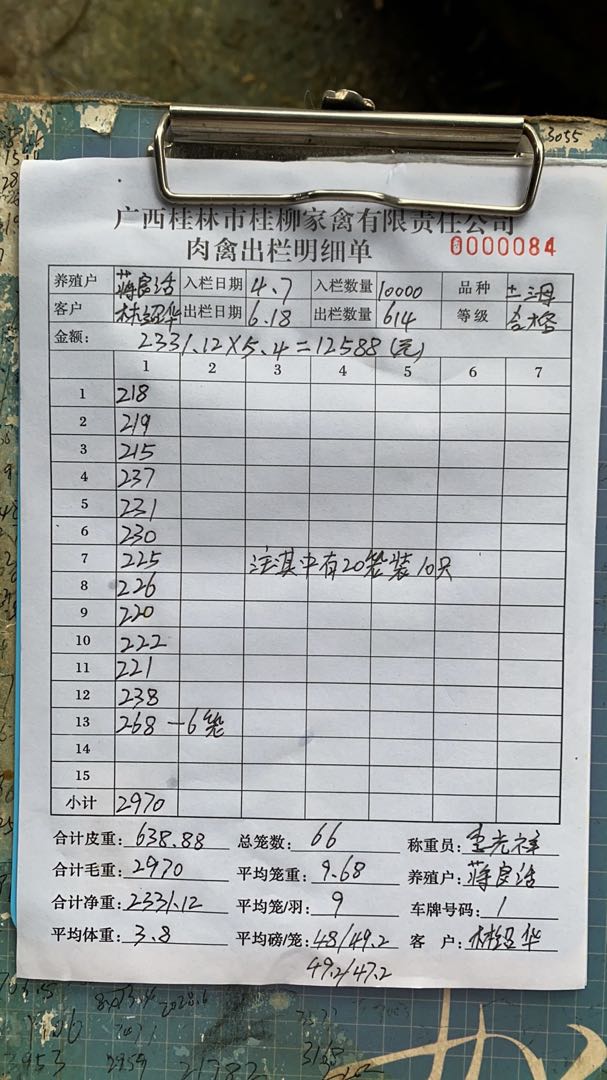 广西桂林市桂柳家禽有限责任公司
肉禽出栏明细单 0000084
养殖户 蒋良活 入栏日期 4.7 入栏数量 10000 品种 土
客户 林绍华 出栏日期 6.18 出栏数量 614 等级 合格
金额: 2331.12×5.4=12588(元)
1 2 3 4 5 6 7
1 218
2 219
3 215
4 237
5 231
6 230
7 225 注其中有20笼装10只
8 226
9 220
10 222
11 221
12 238
13 268 -6笼
14
15
小计 2970
合计皮重: 638.88 总笼数: 66 称重员: 李光
合计毛重: 2970 平均笼重: 9.68 养殖户: 蒋良活
合计净重: 2331.12 平均笼/羽: 9 车牌号码: 1
平均体重: 3.8 平均磅/笼: 48/49.2 客户: 林绍华
49.2/47.2
3055
2953 2959